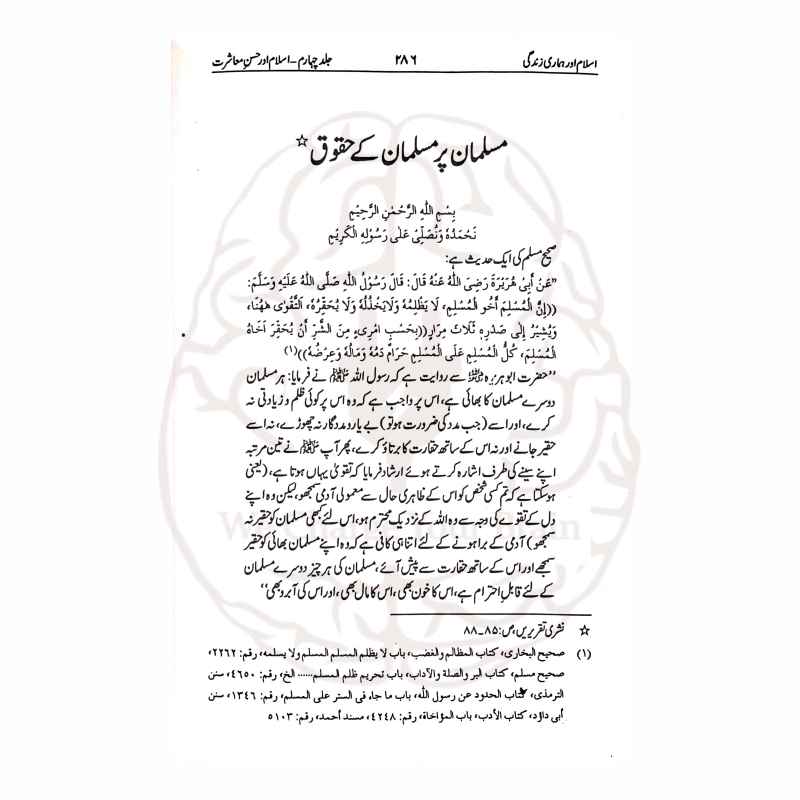 اسلام اور ہماری زندگی ۲۸۶ جلد چہارم – اسلام اور حسنِ معاشرت
مسلمان پر مسلمان کے حقوق ☆
بِسْمِ اللّٰهِ الرَّحْمٰنِ الرَّحِيْمِ
نَحْمَدُهٗ وَنُصَلِّیْ عَلٰی رَسُوْلِهِ الْكَرِيْمِ
صحیح مسلم کی ایک حدیث ہے:
”عَنْ أَبِیْ هُرَيْرَةَ رَضِیَ اللّٰهُ عَنْهُ قَالَ: قَالَ رَسُوْلُ اللّٰهِ صَلَّى اللّٰهُ عَلَيْهِ وَسَلَّمَ:
((إِنَّ الْمُسْلِمَ أَخُو الْمُسْلِمِ، لَا يَظْلِمُهٗ وَلَا يَخْذُلُهٗ وَلَا يُحَقِّرُهٗ، اَلتَّقْوٰى هٰهُنَا،
وَيُشِيْرُ إِلٰى صَدْرِهٖ ثَلَاثَ مِرَارٍ((بِحَسْبِ امْرِیءٍ مِنَ الشَّرِّ أَنْ يُحَقِّرَ اَخَاهُ
الْمُسْلِمَ، كُلُّ الْمُسْلِمِ عَلَى الْمُسْلِمِ حَرَامٌ دَمُهٗ وَمَالُهٗ وَعِرْضُهٗ))(۱)
”حضرت ابوہریرہ رضی اللہ عنہ سے روایت ہے کہ رسول اللہ ﷺ نے فرمایا: ہر مسلمان
دوسرے مسلمان کا بھائی ہے، اس پر واجب ہے کہ وہ اس پر کوئی ظلم و زیادتی نہ
کرے، اور اسے (جب مدد کی ضرورت ہو تو) بے یار و مددگار نہ چھوڑے، نہ اسے
حقیر جانے اور نہ اس کے ساتھ حقارت کا برتاؤ کرے، پھر آپ ﷺ نے تین مرتبہ
اپنے سینے کی طرف اشارہ کرتے ہوئے ارشاد فرمایا کہ تقویٰ یہاں ہوتا ہے، (یعنی
ہو سکتا ہے کہ تم کسی شخص کو اس کے ظاہری حال سے معمولی آدمی سمجھو، لیکن وہ اپنے
دل کے تقوے کی وجہ سے وہ اللہ کے نزدیک محترم ہو، اس لئے کبھی مسلمان کو حقیر نہ
سمجھو) آدمی کے برا ہونے کے لئے اتنا ہی کافی ہے کہ وہ اپنے مسلمان بھائی کو حقیر
سمجھے اور اس کے ساتھ حقارت سے پیش آئے، مسلمان کی ہر چیز دوسرے مسلمان
کے لئے قابلِ احترام ہے، اس کا خون بھی، اس کا مال بھی، اور اس کی آبرو بھی“
☆ نشری تقریریں، ص: ۸۵۔۸۸
(۱) صحیح البخاری، کتاب المظالم والغضب، باب لا یظلم المسلم المسلم ولا یسلمه، رقم: ۲۲۶۲،
صحیح مسلم، کتاب البر والصلة والآداب، باب تحریم ظلم المسلم...... الخ، رقم: ۴۶۵۰، سنن
الترمذی، کتاب الحدود عن رسول اللّٰه، باب ما جاء فی الستر علی المسلم، رقم: ۱۳۴۶، سنن
أبی داؤد، کتاب الأدب، باب المؤاخاة، رقم: ۴۲۴۸، مسند أحمد، رقم: ۵۱۰۳